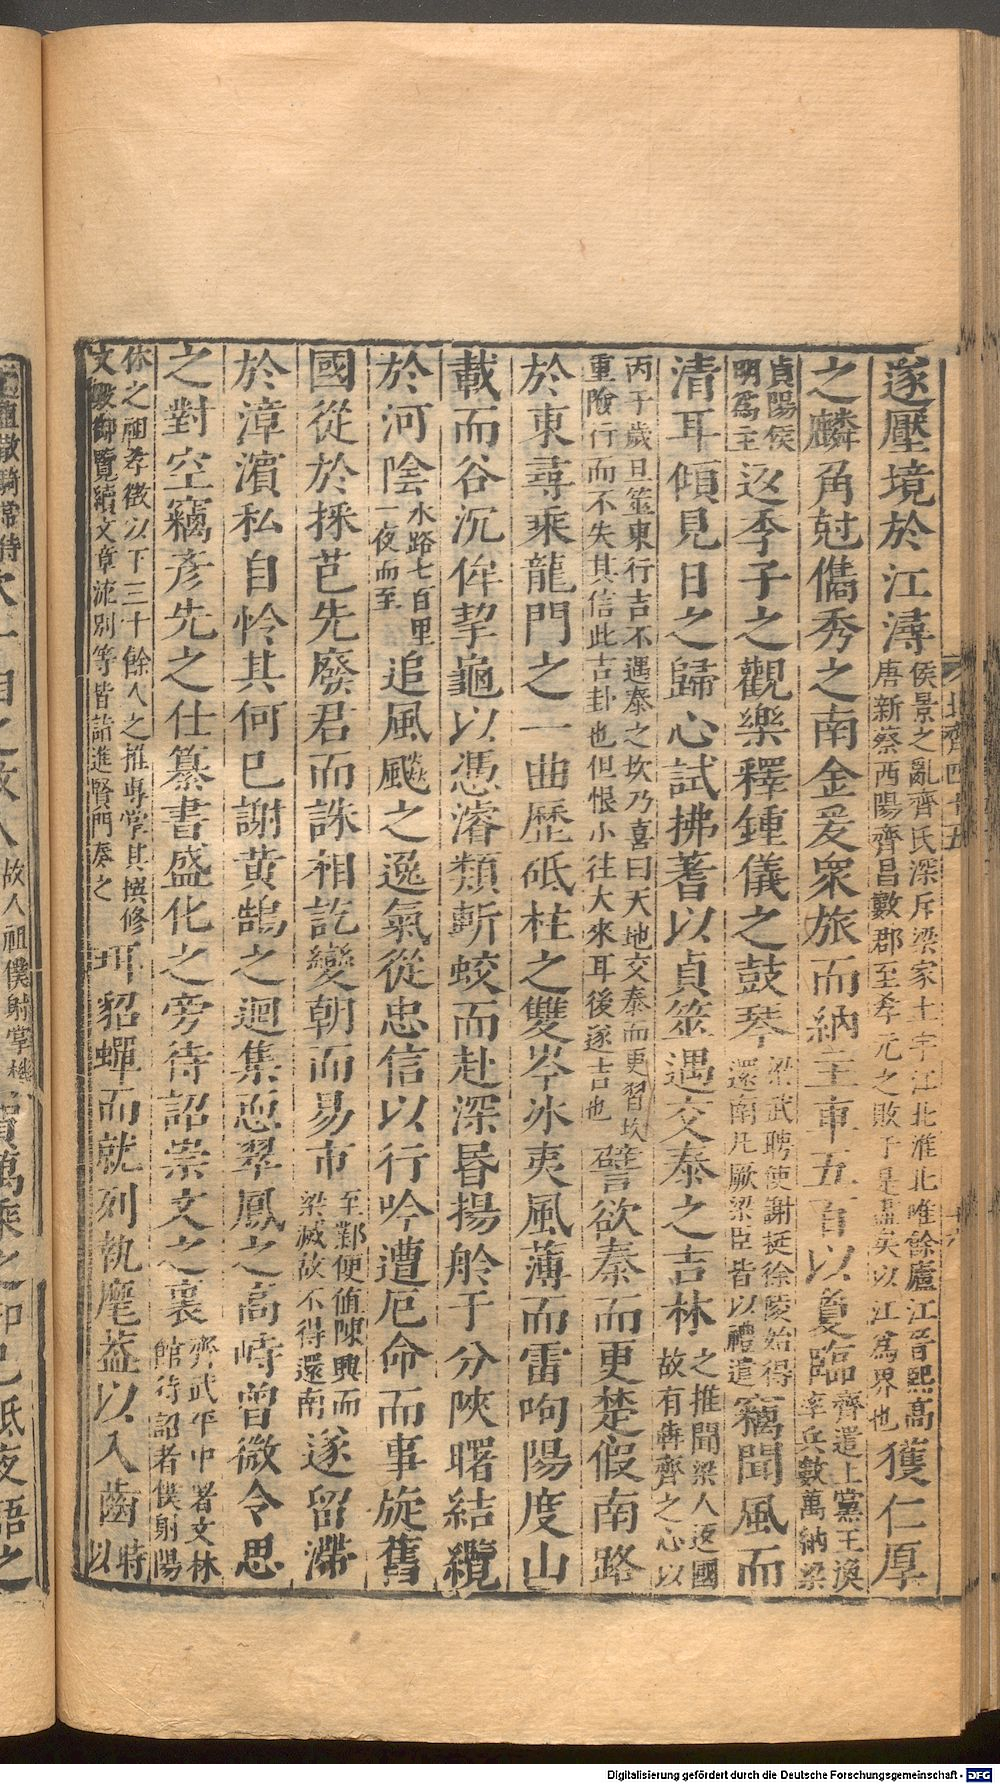 遂壓境於江潯侯景之亂齊氏深斥梁家土宇江北淮北唯餘廬江晉熙高唐新蔡西陽齊昌數郡至孝元之敗于是盡矣以江為界也獲仁厚
之麟角尅儁秀之南金爰衆旅而納主車五百以夐臨齊遣上黨王渙率兵數萬納梁
貞陽侯明為主返季子之觀樂釋鍾儀之鼓琴梁武聘使謝挺徐陵始得還南凡厥梁臣皆以禮遣竊聞風而
清耳傾見日之歸心試拂蓍以貞筮遇交泰之吉林之推聞梁人返國故有犇齊之心以
丙子歲旦筮東行吉不遇泰之坎乃喜曰天地交泰而更習坎重險行而不失其信此吉卦也但恨小往大來耳後遂吉也譬欲秦而更楚假南路
於東尋乘龍門之一曲歷砥柱之雙岑冰夷風薄而雷呴陽度山
載而谷沉侔挈龜以憑濬類斬蛟而赴深昏揚舲于分陝曙結纜
於河陰水路七百里一夜而至追風飈之逸氣從忠信以行吟遭厄命而事旋舊
國從於採芑先廢君而誅相訖變朝而易市至鄴便值陳興而梁滅故不得還南遂留滯
於漳濱私自怜其何已謝黄鵠之迴集恧翠鳳之高峙曾微令思
之對空竊彥先之仕纂書盛化之旁待詔崇文之裏齊武平中署文林館待詔者僕射陽
休之祖孝徵以下三十餘人之推專掌其撰修文殿御覽續文章流別等皆詣進賢門奏之珥貂蟬而就列執麾蓋以入齒時以
北齊四十五
故人祖僕射掌機
Digitalisierung gefördert durch die Deutsche Forschungsgemeinschaft - DFG